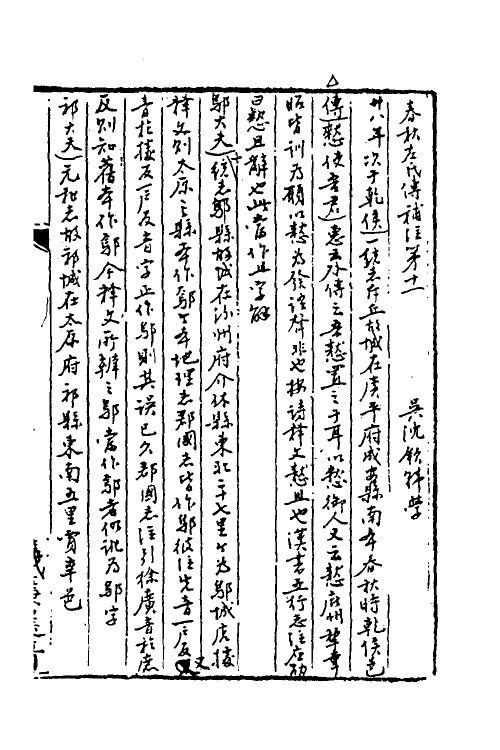 春秋左氏傳補注第十一　　吳沈欽韓學
廿八年次于乾侯一統志斥丘故城在廣平府成安縣南本春秋時乾侯邑
傳憖使吾君惠云外傳云吾憖置之于耳以憖御人又云憖庇州犂韋
昭皆訓為願以憖為發語聲非也按詩釋文憖且也漢書五行志注應劭
曰憖且辭也此當作且字解
鄔大夫一統志鄔縣故城在汾州府介休縣東北二十七里今為鄔城店按
釋文則太原之縣本作鄔今本地理志郡國志皆作鄔彼注先音一戶反又
音於據反一戶反音字正作鄔則其誤已久郡國志注引徐廣音於庶
反則知舊本作鄔今釋文所辨之鄔當作鄥者仍訛為鄔字
祁大夫元和志故祁城在太原府祁縣東南五里賈辛邑